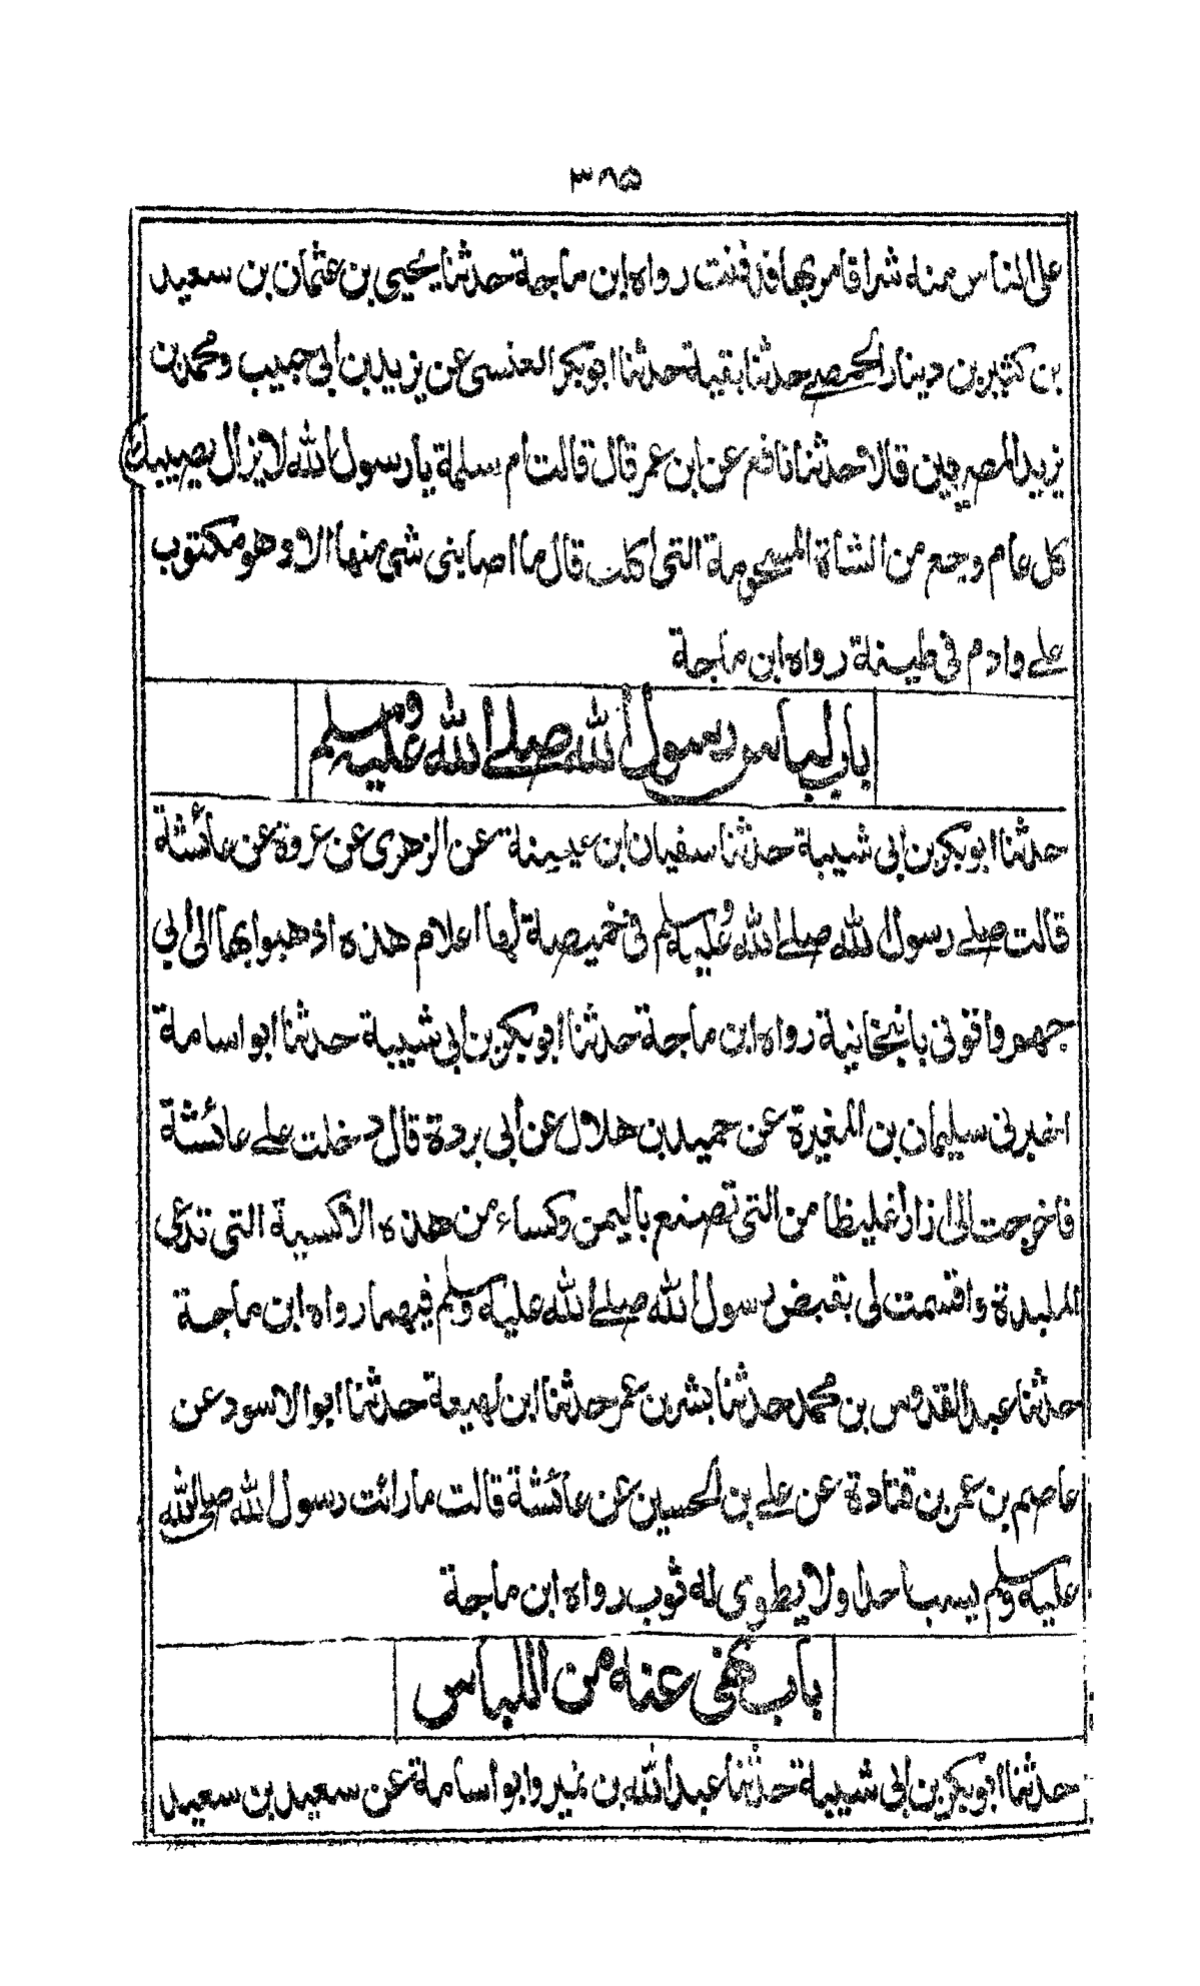 ٣٨٥
على الناس منه شرا فامر بها فدفنت رواه ابن ماجة حدثنا يحيى بن عثمان بن سعيد
بن كثير بن دينار الحمصے حدثنا بقية حدثنا ابو بكر العنسى عن يزيد بن ابى حبيب ومحمد بن
يزيد المصريين قالا حدثنا نافع عن ابن عمر قال قالت ام سلمة يا رسول الله لا يزال يصيبك
كل عام وجع من الشاة المسمومة التى اكلت قال ما اصابنى شئ منها الا وهو مكتوب
علے وادم فى طينة رواه ابن ماجة
باب لباس رسول الله صلے الله عليه وسلم
حدثنا ابو بكر بن ابى شيبة حدثنا سفيان ابن عيينة عن الزهرى عن عروة عن عائشة
قالت صلے رسول الله صلے الله عليه وسلم فى خميصة لها اعلام هذه اذهبوا بها الى ابى
جهم واتونى بانبجانية رواه ابن ماجة حدثنا ابو بكر بن ابى شيبة حدثنا ابو اسامة
اخبرنى سليمان بن المغيرة عن حميد بن هلال عن أبى بردة قال دخلت علے عائشة
فاخرجت الى ازارا غليظا من التى تصنع باليمن وكساء من هذه الاكسية التى تدعى
الملبدة واقسمت لى بقبض رسول الله صلے الله عليه وسلم فيهما رواه ابن ماجة
حدثنا عبد القدوس بن محمد حدثنا بشر بن عمر حدثنا ابن لهيعة حدثنا ابو الاسود عن
عاصم بن عمر بن قتادة عن علے بن الحسين عن عائشة قالت ما رائت رسول الله صلى الله
عليه وسلم يسب احدا ولا يطوى له ثوب رواه ابن ماجة
باب نهى عنه من اللباس
حدثنا ابو بكر بن ابى شيبة حدثنا عبد الله بن نمير وابو اسامة عن سعيد بن سعيد